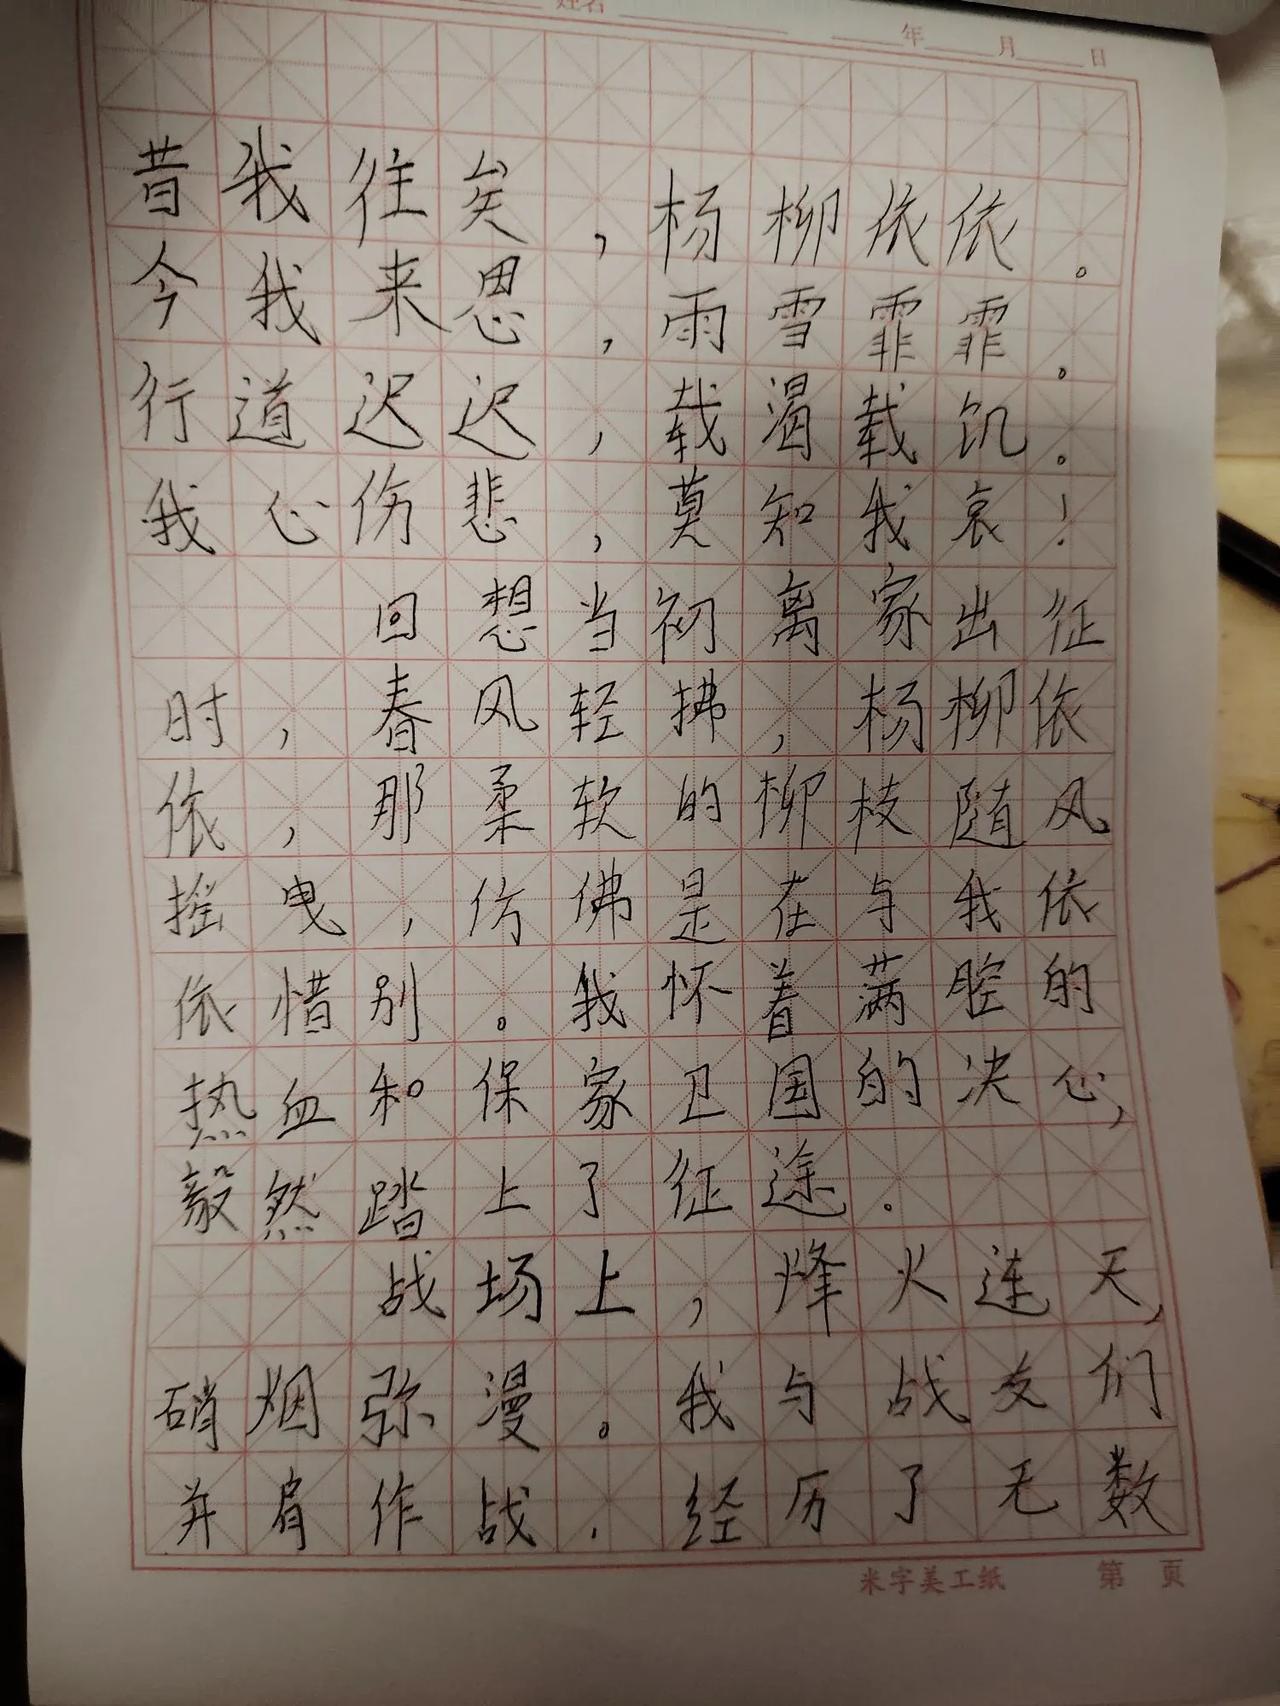 姓名 年 月 日
昔我往矣，杨柳依依。
今我来思，雨雪霏霏。
行道迟迟，载渴载饥。
我心伤悲，莫知我哀！
回想当初离家出征
时，春风轻拂，杨柳依
依，那柔软的柳枝随风
摇曳，仿佛是在与我依
依惜别。我怀着满腔的
热血和保家卫国的决心，
毅然踏上了征途。
战场上，烽火连天，
硝烟弥漫。我与战友们
并肩作战，经历了无数
米字美工纸 第 页